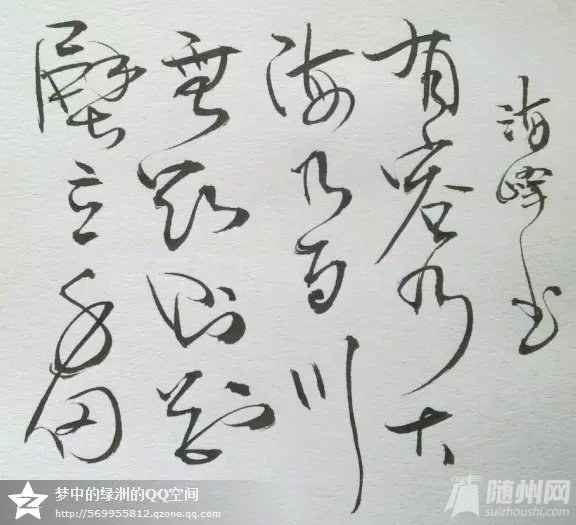 壁立千仞
無欲則剛
海乃百川
有容乃大
海峰书
梦中的绿洲的QQ空间
http://569955812.qzone.qq.com
随州网
suizhoushi.com